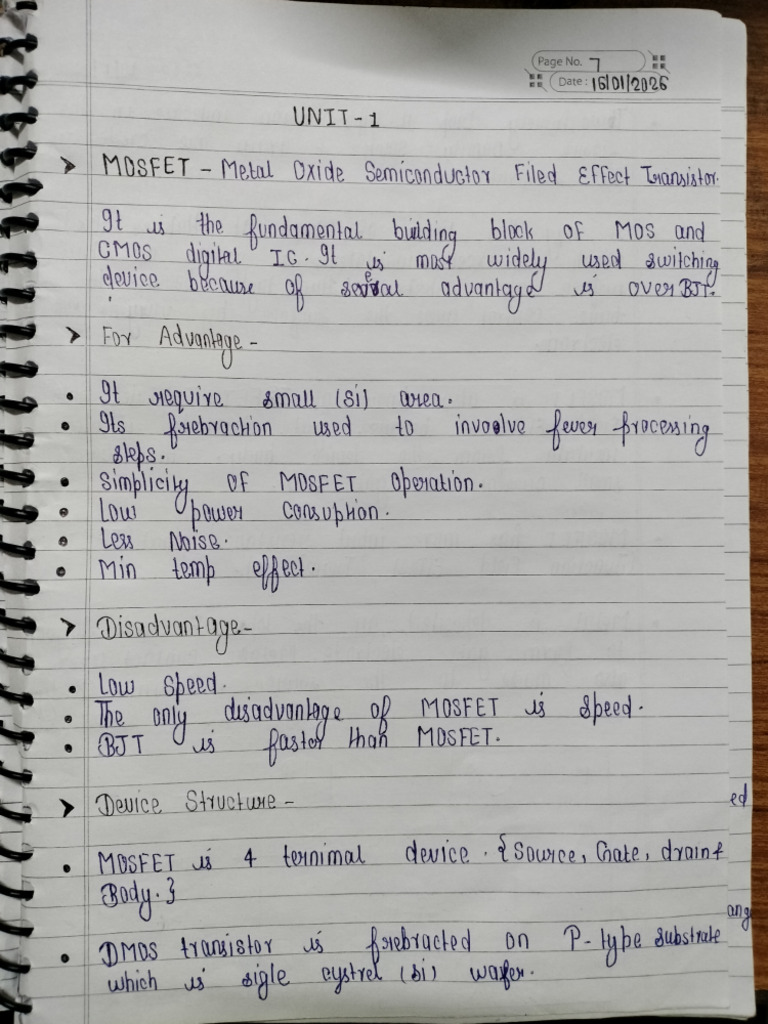 Page No. 7
Date: 15/01/2026
UNIT-1
MOSFET - Metal Oxide Semiconductor Filed Effect Transistor.
It is the fundamental building block of MOS and
CMOS digital IC. It is most widely used switching
device because of several advantage is over BJT.
For Advantage -
• It require small (Si) area.
• Its frebraction used to involve fever processing
steps.
• Simplicity of MOSFET operation.
• Low power Consuption.
• Less Noise.
• Min temp effect.
Disadvantage-
• Low Speed.
• The only disadvantage of MOSFET is speed.
• BJT is faster than MOSFET.
Device Structure -
ed
• MOSFET is 4 ternimal device. {Source, Gate, drain &
Body.}
ang
• DMOS transistor is frebracted on P-type substrate
which is sigle cystrel (Si) wafer.